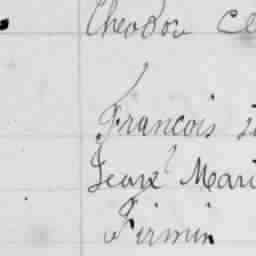 Theodor Cl
Francois
Jean Mari
Firmin